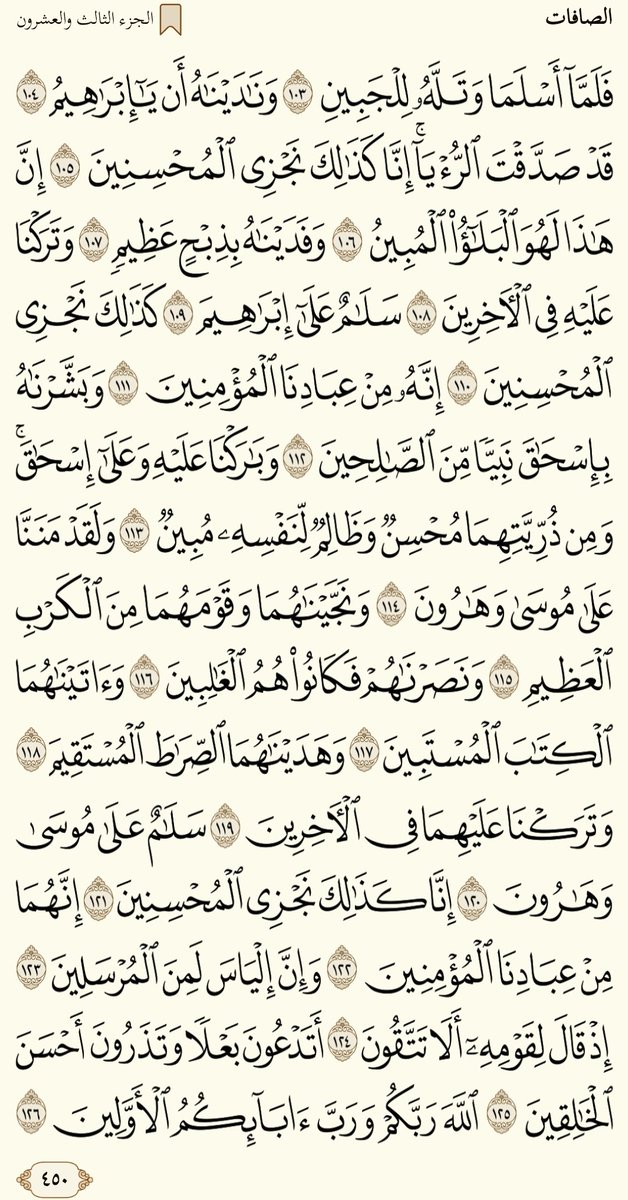 الصافات
الجزء الثالث والعشرون
فَلَمَّآ أَسۡلَمَا وَتَلَّهُۥ لِلۡجَبِينِ ١٠٣ وَنَٰدَيۡنَٰهُ أَن يَٰٓإِبۡرَٰهِيمُ ١٠٤
قَدۡ صَدَّقۡتَ ٱلرُّءۡيَآۚ إِنَّا كَذَٰلِكَ نَجۡزِي ٱلۡمُحۡسِنِينَ ١٠٥ إِنَّ
هَٰذَا لَهُوَ ٱلۡبَلَٰٓؤُاْ ٱلۡمُبِينُ ١٠٦ وَفَدَيۡنَٰهُ بِذِبۡحٍ عَظِيمٖ ١٠٧ وَتَرَكۡنَا
عَلَيۡهِ فِي ٱلۡأٓخِرِينَ ١٠٨ سَلَٰمٌ عَلَىٰٓ إِبۡرَٰهِيمَ ١٠٩ كَذَٰلِكَ نَجۡزِي
ٱلۡمُحۡسِنِينَ ١١٠ إِنَّهُۥ مِنۡ عِبَادِنَا ٱلۡمُؤۡمِنِينَ ١١١ وَبَشَّرۡنَٰهُ
بِإِسۡحَٰقَ نَبِيّٗا مِّنَ ٱلصَّٰلِحِينَ ١١٢ وَبَٰرَكۡنَا عَلَيۡهِ وَعَلَىٰٓ إِسۡحَٰقَۚ
وَمِن ذُرِّيَّتِهِمَا مُحۡسِنٞ وَظَالِمٞ لِّنَفۡسِهِۦ مُبِينٞ ١١٣ وَلَقَدۡ مَنَنَّا
عَلَىٰ مُوسَىٰ وَهَٰرُونَ ١١٤ وَنَجَّيۡنَٰهُمَا وَقَوۡمَهُمَا مِنَ ٱلۡكَرۡبِ
ٱلۡعَظِيمِ ١١٥ وَنَصَرۡنَٰهُمۡ فَكَانُواْ هُمُ ٱلۡغَٰلِبِينَ ١١٦ وَءَاتَيۡنَٰهُمَا
ٱلۡكِتَٰبَ ٱلۡمُسۡتَبِينَ ١١٧ وَهَدَيۡنَٰهُمَا ٱلصِّرَٰطَ ٱلۡمُسۡتَقِيمَ ١١٨
وَتَرَكۡنَا عَلَيۡهِمَا فِي ٱلۡأٓخِرِينَ ١١٩ سَلَٰمٌ عَلَىٰ مُوسَىٰ
وَهَٰرُونَ ١٢٠ إِنَّا كَذَٰلِكَ نَجۡزِي ٱلۡمُحۡسِنِينَ ١٢١ إِنَّهُمَا
مِنۡ عِبَادِنَا ٱلۡمُؤۡمِنِينَ ١٢٢ وَإِنَّ إِلۡيَاسَ لَمِنَ ٱلۡمُرۡسَلِينَ ١٢٣
إِذۡ قَالَ لِقَوۡمِهِۦٓ أَلَا تَتَّقُونَ ١٢٤ أَتَدۡعُونَ بَعۡلٗا وَتَذَرُونَ أَحۡسَنَ
ٱلۡخَٰلِقِينَ ١٢٥ ٱللَّهَ رَبَّكُمۡ وَرَبَّ ءَابَآئِكُمُ ٱلۡأَوَّلِينَ ١٢٦
٤٥٠